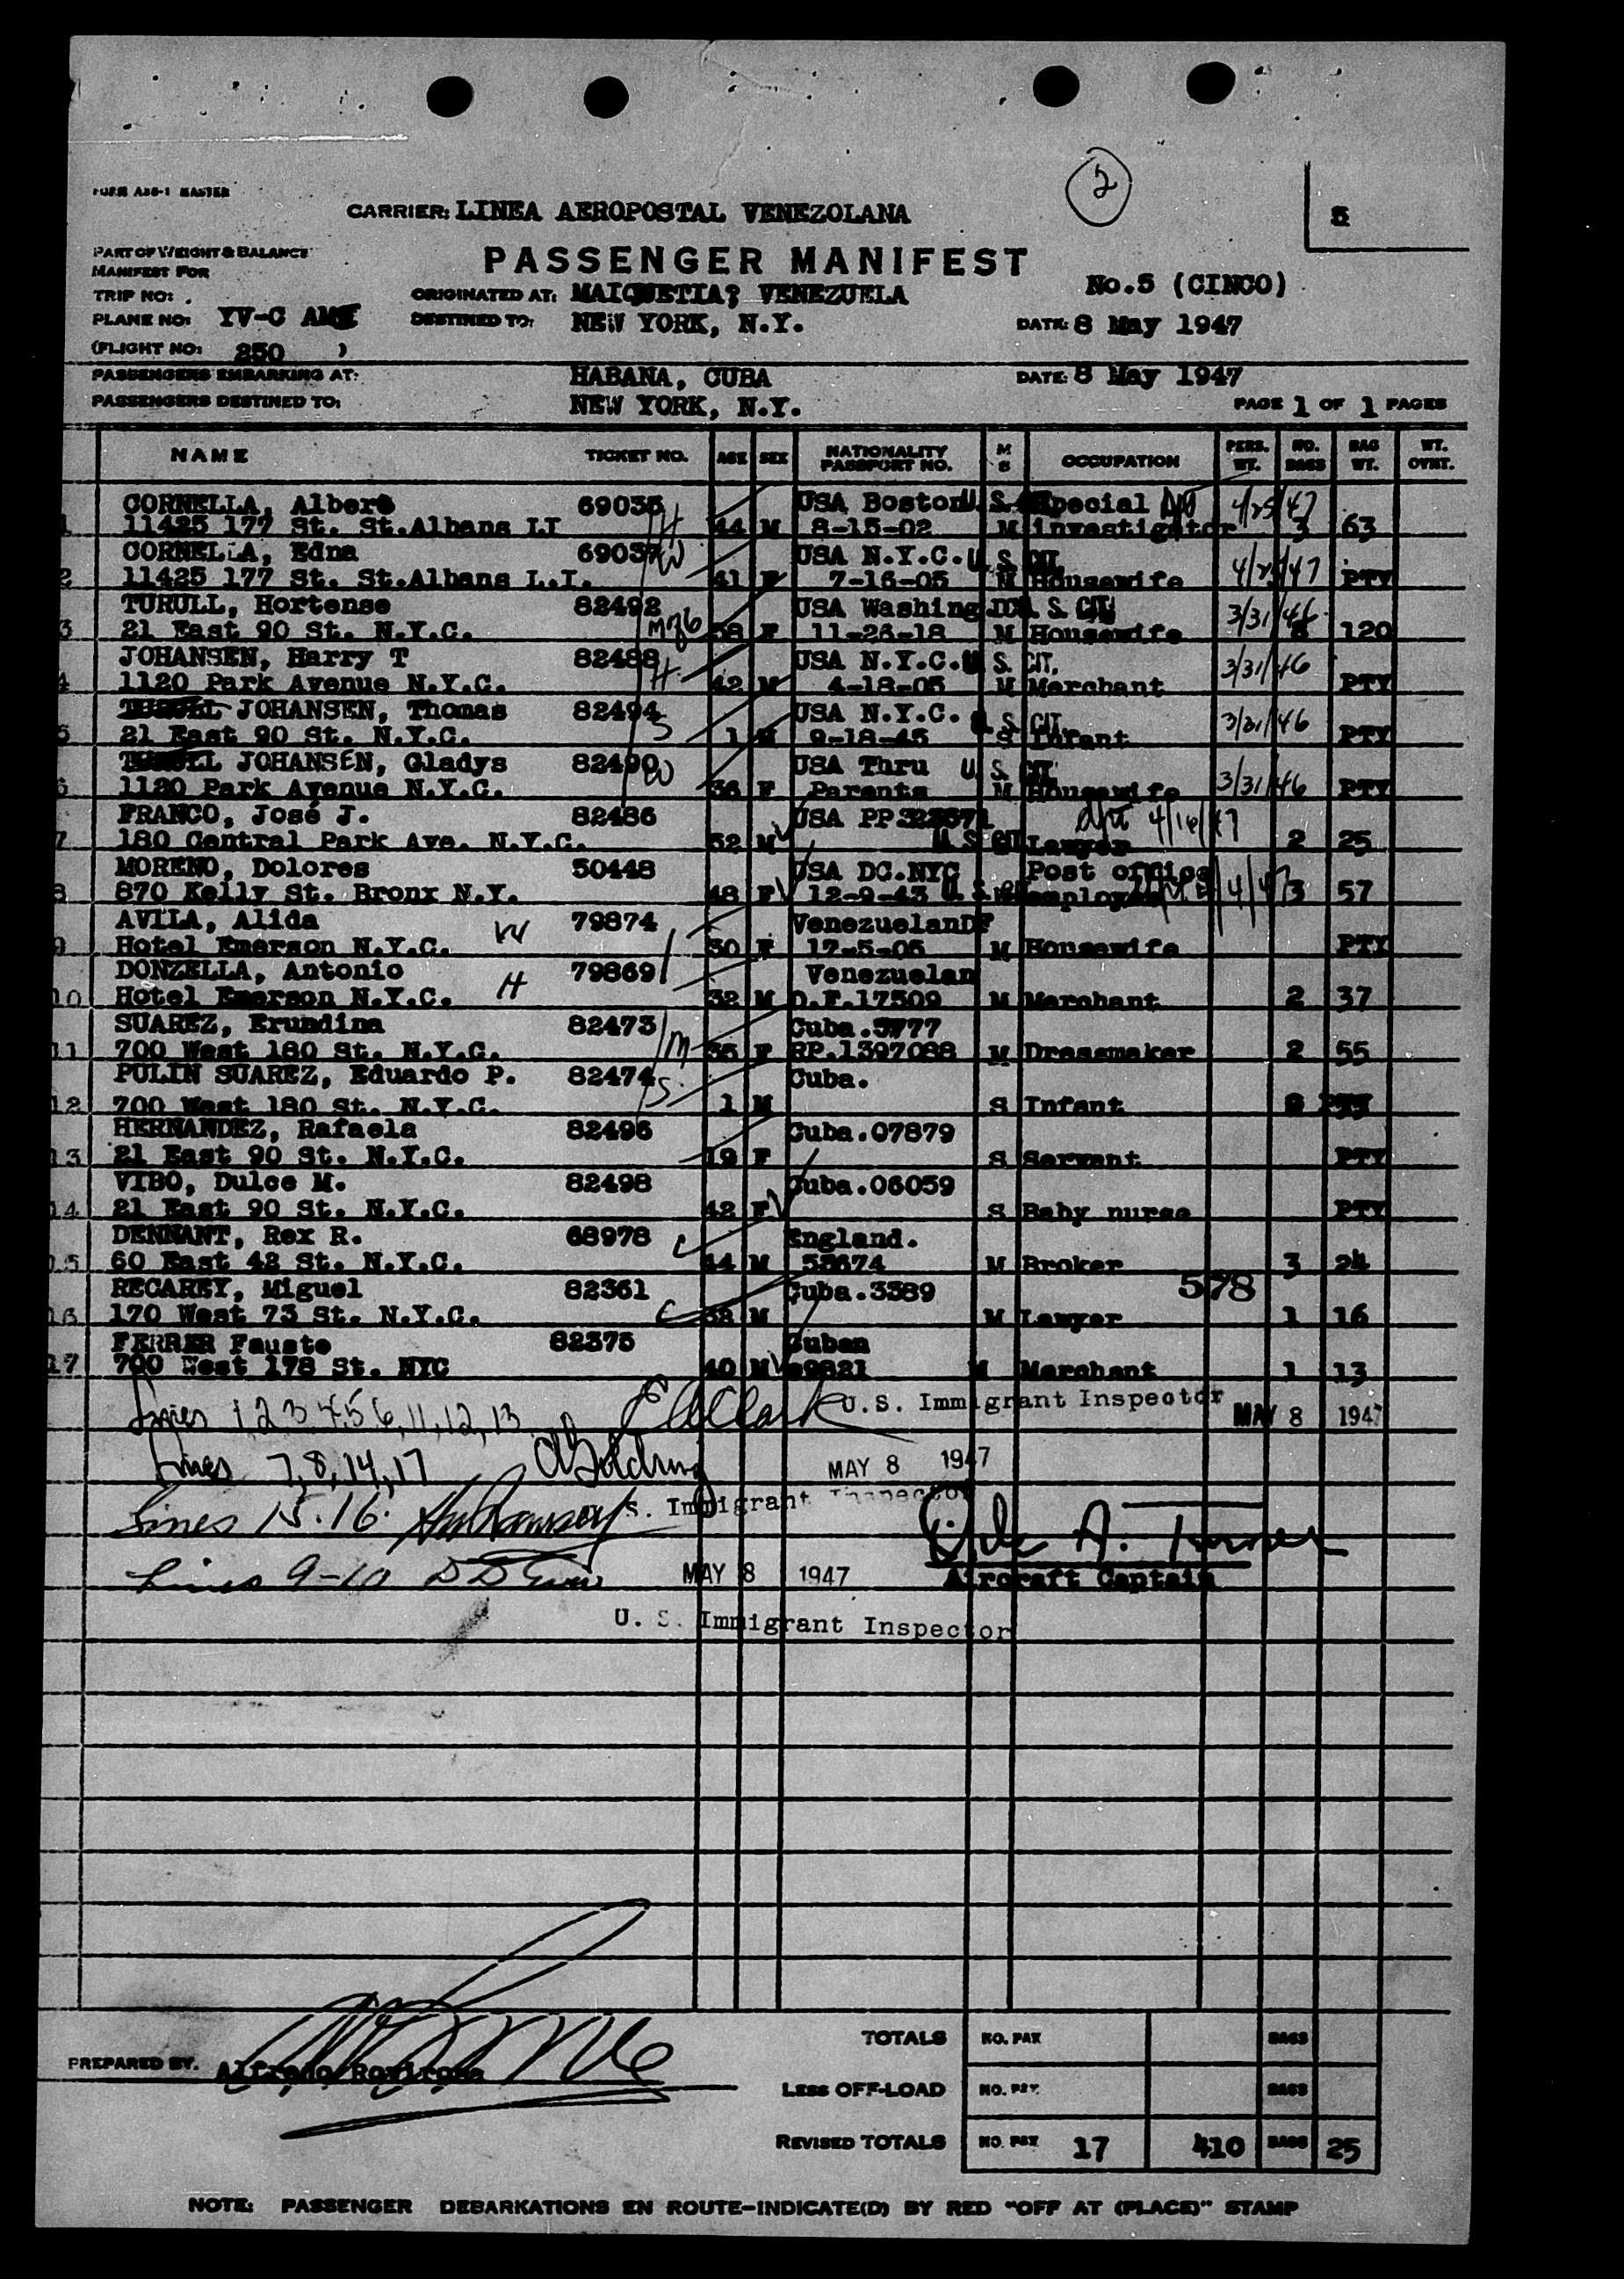 FORM A28-1 MASTER
2
CARRIER: LINEA AEROPOSTAL VENEZOLANA
5
PART OF WEIGHT & BALANCE
PASSENGER MANIFEST
MANIFEST FOR
No.5 (CINCO)
TRIP NO:
ORIGINATED AT: MAIQUETIA? VENEZUELA
PLANE NO: YV-C
DESTINED TO: NEW YORK, N.Y.
DATE: 8 May 1947
(FLIGHT NO: 250 )
PASSENGERS EMBARKING AT: HABANA, CUBA DATE: 8 May 1947
PASSENGERS DESTINED TO: NEW YORK, N.Y. PAGE 1 OF 1 PAGES
NAME TICKET NO. AGE SEX NATIONALITY PASSPORT NO. M S OCCUPATION PERS. WT. NO. BAGS BAG WT. WT. OVHT.
CORNELLA, Albert 69035 USA Boston U. S. Special 4/25/47
1 11425 177 St. St.Albans LI H 44 M 8-15-02 M investigator 3 63
CORNELLA, Edna 69037 W USA N.Y.C. U. S. CIT.
2 11425 177 St. St.Albans L.I. 41 F 7-16-05 M Housewife 4/25/47 PTY
TURULL, Hortense 82492 USA Washing DC U. S. CIT. 3/31/46
3 21 East 90 St. N.Y.C. F 11-26-18 M Housewife 120
JOHANSEN, Harry T 82488 USA N.Y.C. U. S. CIT. 3/31/46
4 1120 Park Avenue N.Y.C. H 42 M 4-18-05 M Merchant PTY
TURULL JOHANSEN, Thomas 82494 USA N.Y.C. U. S. CIT. 3/31/46
5 21 East 90 St. N.Y.C. S 1 M 9-18-45 S Infant PTY
TURULL JOHANSEN, Gladys 82490 W USA Thru U. S. CIT.
6 1120 Park Avenue N.Y.C. 36 F Parents M Housewife 3/31/46 PTY
FRANCO, José J. 82486 USA PP 4/16/47
7 180 Central Park Ave. N.Y.C. 52 M U. S. CIT. Lawyer 2 25
MORENO, Dolores 50448 USA DC.NYC Post office
8 870 Kelly St. Bronx N.Y. 48 F 12-9-43 U. S. employee 3 57
AVILA, Alida W 79874 Venezuelan DF
9 Hotel Emerson N.Y.C. 30 F 17-5-05 M Housewife PTY
DONZELLA, Antonio H 79869 Venezuelan
10 Hotel Emerson N.Y.C. 32 M D.F.17509 M Merchant 2 37
SUAREZ, Erundina 82473 Cuba.5777
11 700 West 180 St. N.Y.C. M 35 F RP.1397088 M Dressmaker 2 55
PULIN SUAREZ, Eduardo P. 82474 Cuba.
12 700 West 180 St. N.Y.C. S 1 M S Infant PTY
HERNANDEZ, Rafaela 82496 Cuba.07879
13 21 East 90 St. N.Y.C. 19 F S Servant PTY
VIBO, Dulce M. 82498 Cuba.06059
14 21 East 90 St. N.Y.C. 42 F S Baby nurse PTY
DENNANT, Rex R. 68978 C England.
15 60 East 42 St. N.Y.C. 44 M 55674 M Broker 3 24
RECAREY, Miguel 82361 Cuba.3389 578
16 170 West 73 St. N.Y.C. C 38 M M Lawyer 1 16
FERRER Fausto 82375 Cuban
17 700 West 178 St. NYC 40 M 9821 M Merchant 1 13
Lines 1,2,3,4,5,6,11,12,13 U.S. Immigrant Inspector MAY 8 1947
Lines 7,8,14,17 A Golding MAY 8 1947
Lines 15.16. S. Immigrant Inspector
Lines 9-10 MAY 8 1947 Aircraft Captain
U. S. Immigrant Inspector
TOTALS NO. PAX BAGS
PREPARED BY. Alfredo
LESS OFF-LOAD NO. PAX BAGS
REVISED TOTALS NO. PAX 17 410 BAGS 25
NOTE: PASSENGER DEBARKATIONS EN ROUTE-INDICATE(D) BY RED "OFF AT (PLACE)" STAMP